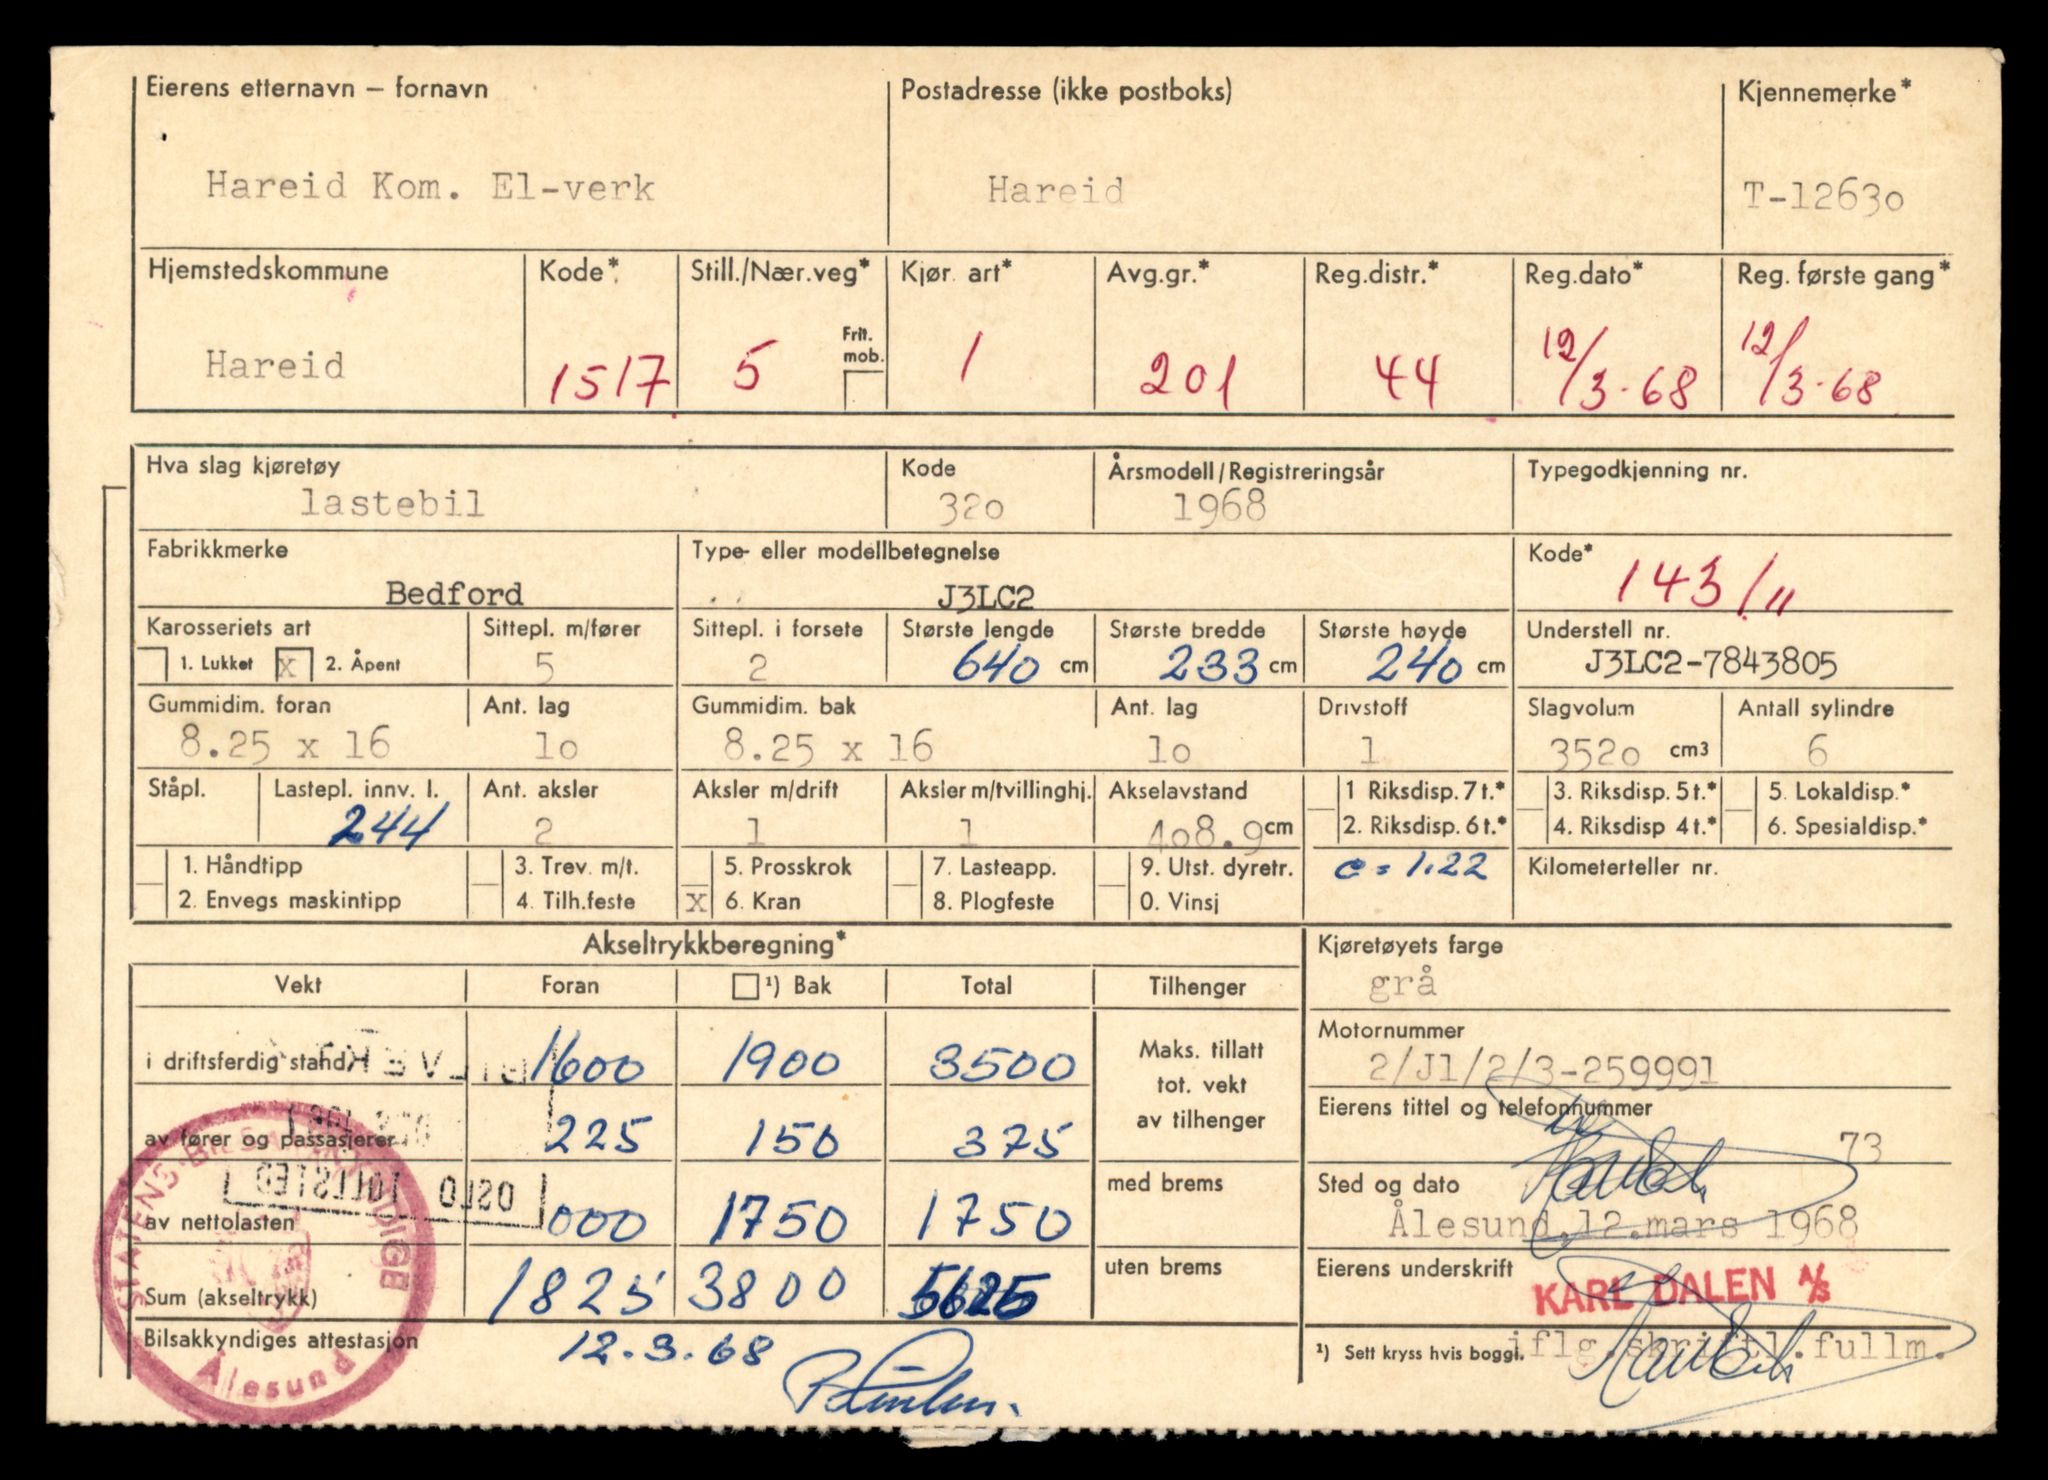 Eierens etternavn – fornavn Postadresse (ikke postboks) Kjennemerke*
Hareid Kom. El-verk Hareid T-12630
Hjemstedskommune Kode* Still./Nær.veg* Kjør. art* Avg.gr.* Reg.distr.* Reg.dato* Reg. første gang*
Frit. mob.
Hareid 1517 5 1 201 44 12/3-68 12/3-68
Hva slag kjøretøy Kode Årsmodell/Registreringsår Typegodkjenning nr.
lastebil 320 1968
Fabrikkmerke Type- eller modellbetegnelse Kode*
Bedford J3LC2 143/11
Karosseriets art Sittepl. m/fører Sittepl. i forsete Største lengde Største bredde Største høyde Understell nr.
1. Lukket x 2. Åpent 5 2 640 cm 233 cm 240 cm J3LC2-7843805
Gummidim. foran Ant. lag Gummidim. bak Ant. lag Drivstoff Slagvolum Antall sylindre
8.25 x 16 10 8.25 x 16 10 1 3520 cm3 6
Ståpl. Lastepl. innv. l. Ant. aksler Aksler m/drift Aksler m/tvillinghj. Akselavstand 1 Riksdisp. 7 t.* 3. Riksdisp. 5 t.* 5. Lokaldisp.*
244 2 1 1 408.9 cm 2. Riksdisp. 6 t.* 4. Riksdisp 4 t.* 6. Spesialdisp.*
1. Håndtipp 3. Trev. m/t. 5. Prosskrok 7. Lasteapp. 9. Utst. dyretr. c = 1.22 Kilometerteller nr.
2. Envegs maskintipp 4. Tilh.feste x 6. Kran 8. Plogfeste 0. Vinsj
Akseltrykkberegning* Kjøretøyets farge
Vekt Foran ¹) Bak Total Tilhenger grå
i driftsferdig stand 1600 1900 3500 Maks. tillatt tot. vekt av tilhenger Motornummer
2/J1/2/3-259991
av fører og passasjerer 225 150 375 Eierens tittel og telefonnummer
73
OSLO TOLLSTED
av nettolasten 000 1750 1750 med brems Sted og dato
Ålesund, 12. mars 1968
Sum (akseltrykk) 1825 3800 5625 uten brems Eierens underskrift
KARL DALEN A/S
Bilsakkyndiges attestasjon 12.3.68 ¹) Sett kryss hvis boggi. iflg. skriftl. fullm.
STATENS BILSAKKYNDIGE
Ålesund